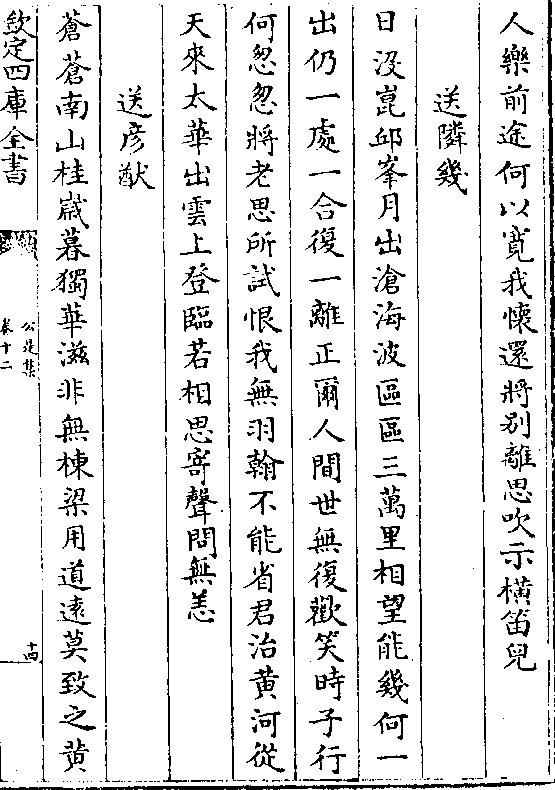 人樂前途何以寛我懐還將别離思吹示横笛兒
送隣幾
日没崑邱峯月出滄海波區區三萬里相望能幾何一
出仍一處一合復一離正爾人間世無復歡笑時子行
何怱怱將老思所試恨我無羽翰不能省君治黄河從
天來太華出雲上登臨若相思寄聲問無恙
送彦猷
蒼蒼南山桂嵗暮獨華滋非無棟梁用道逺莫致之黄
欽定四庫全書
公是集
卷十二
十四